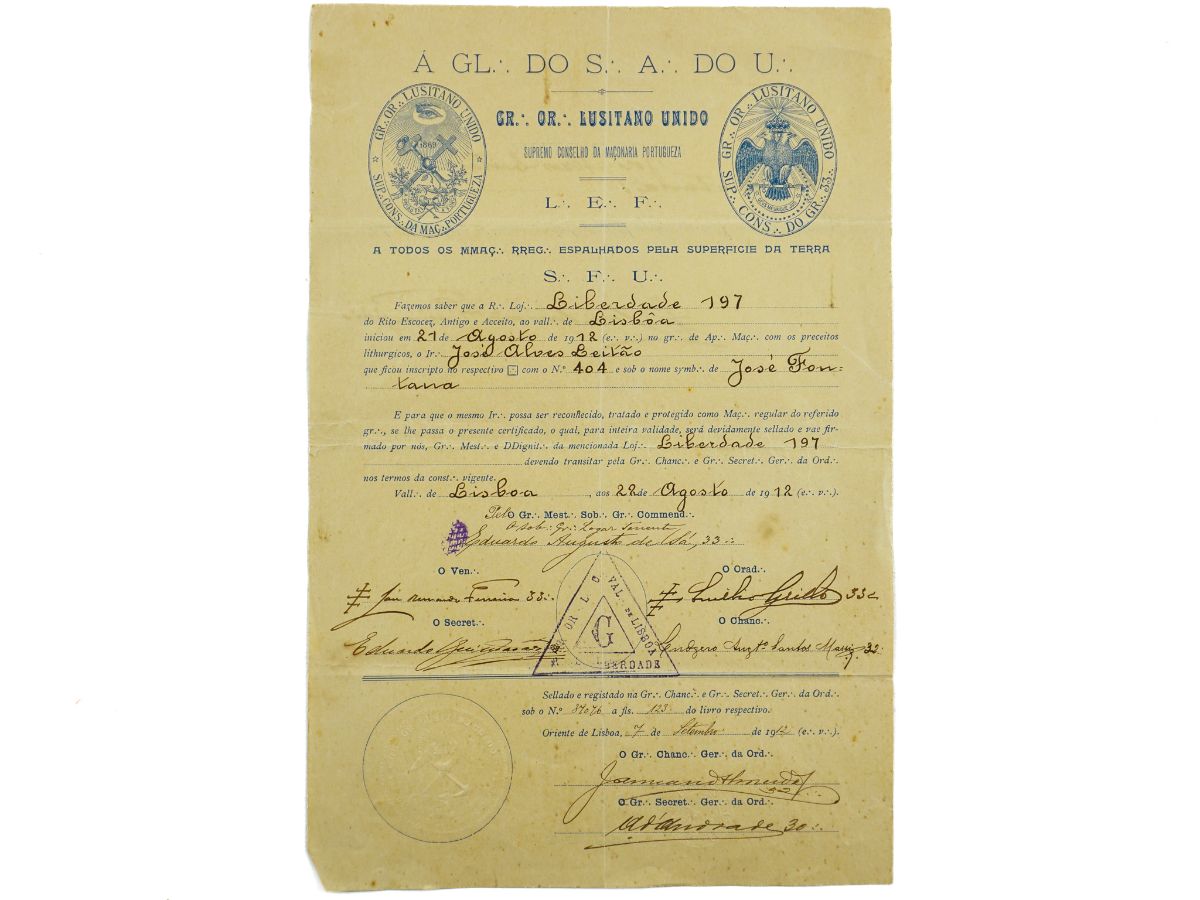 Á GL∴ DO S∴ A∴ DO U∴
GR∴ OR∴ LUSITANO UNIDO
SUP∴ CONS∴ DA MAÇ∴ PORTUGUEZA
1869
GR∴ OR∴ LUSITANO UNIDO
SUPREMO CONSELHO DA MAÇONARIA PORTUGUEZA
GR∴ OR∴ LUSITANO UNIDO
SUP∴ CONS∴ DO GR∴ 33∴
L∴ E∴ F∴
A TODOS OS MMAÇ∴ RREG∴ ESPALHADOS PELA SUPERFICIE DA TERRA
S∴ F∴ U∴
Fazemos saber que a R∴ Loj∴ Liberdade 197
do Rito Escocez, Antigo e Acceito, ao vall∴ de Lisbôa
iniciou em 21 de Agosto de 1912 (e∴ v∴) no gr∴ de Ap∴ Maç∴ com os preceitos
lithurgicos, o Ir∴ José Alves Leitão
que ficou inscripto no respectivo com o N.º 404 e sob o nome symb∴ de José Fon-
tana
E para que o mesmo Ir∴ possa ser reconhecido, tratado e protegido como Maç∴ regular do referido
gr∴, se lhe passa o presente certificado, o qual, para inteira validade, será devidamente sellado e vae fir-
mado por nós, Gr∴ Mest∴ e DDignit∴ da mencionada Loj∴ Liberdade 197
devendo transitar pela Gr∴ Chanc∴ e Gr∴ Secret∴ Ger∴ da Ord∴
nos termos da const∴ vigente.
Vall∴ de Lisboa, aos 22 de Agosto de 1912 (e∴ v∴).
Pelo O Gr∴ Mest∴ Sob∴ Gr∴ Commend∴
O Sob∴ Gr∴ Logar Tenente
Eduardo Augusto de Sá, 33∴
O Ven∴
O Orad∴
Ferreira 33∴
Grillo 33∴
O Secret∴
O Chanc∴
Eduardo
Santos 32
OR L O VAL DE LISBOA
G
LIBERDADE
Sellado e registado na Gr∴ Chanc∴ e Gr∴ Secret∴ Ger∴ da Ord∴
sob o N.º 87076 a fls. 123 do livro respectivo.
Oriente de Lisboa, 7 de Setembro de 1912 (e∴ v∴).
O Gr∴ Chanc∴ Ger∴ da Ord∴
O Gr∴ Secret∴ Ger∴ da Ord∴
Andrade 30∴